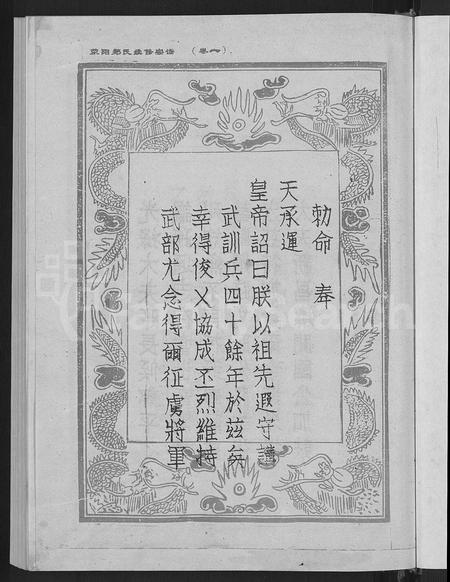 滎陽鄭氏續修宗譜 （卷一）
勅命 奉
天承運
皇帝詔曰朕以祖先遐守講
武訓兵四十餘年於茲矣
幸得俊乂協成丕烈維持
武部尤念得爾征虜將軍